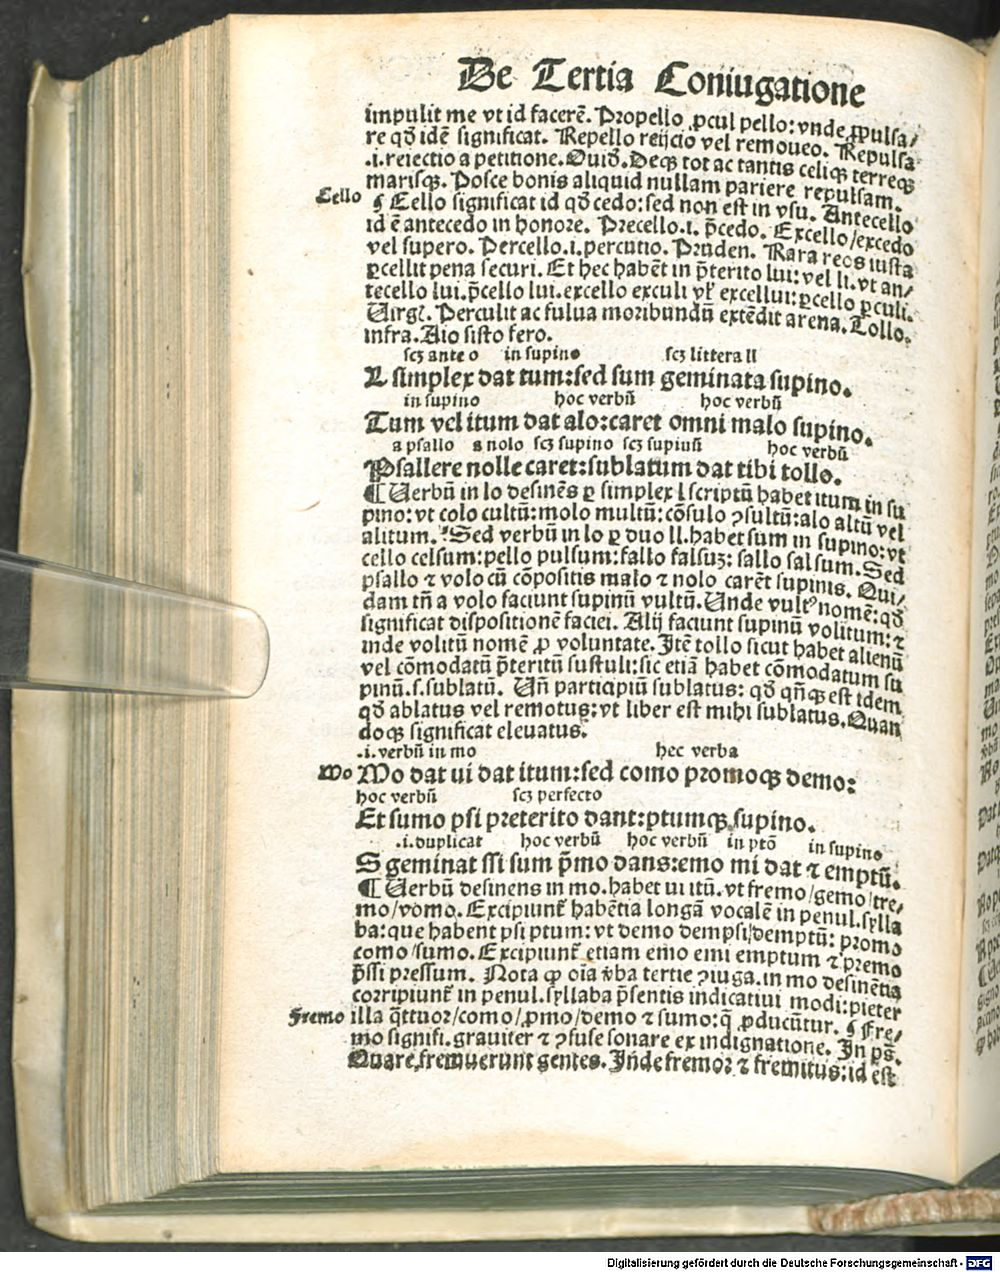 De Tertia Coniugatione
impulit me vt id facerē. Propello ꝓcul pello: vnde ꝓpulsa/
re qđ idē significat. Repello reijcio vel remoueo. Repulsa
.i. reiectio a petitione. Ouiđ. Deqꝫ tot ac tantis celiqꝫ terreqꝫ
marisqꝫ. Posce bonis aliquid nullam pariere repulsam.
Cello
¶ Cello significat id qđ cedo: sed non est in vsu. Antecello
id ē antecedo in honore. Precello .i. p̄cedo. Excello/excedo
vel supero. Percello .i. percutio. Pruden. Rara reos iusta
ꝑcellit pena securi. Et hec habēt in p̄terito lui: vel li. vt an/
tecello lui. p̄cello lui. excello exculi vł excellui: ꝑcello ꝑculi.
Uirgł. Perculit ac fulua moribundū extēdit arena. Tollo.
infra. Aio sisto fero.
scꝫ ante o in supino scꝫ littera ll
L simplex dat tum: sed sum geminata supino.
in supino hoc verbū hoc verbū
Tum vel itum dat alo: caret omni malo supino.
a psallo a nolo scꝫ supino scꝫ supinū hoc verbū
Psallere nolle caret: sublatum dat tibi tollo.
¶ Uerbū in lo desinēs ꝑ simplex l scriptū habet itum in su
pino: vt colo cultū: molo multū: cōsulo ꝯsultū: alo altū vel
alitum. Sed verbū in lo ꝑ duo ll. habet sum in supino: vt
cello celsum: pello pulsum: fallo falsuꝫ: sallo salsum. Sed
psallo ⁊ volo cū cōpositis malo ⁊ nolo carēt supinis. Qui/
dam tn̄ a volo faciunt supinū vultū. Unde vultꝰ nomē: qđ
significat dispositionē faciei. Alij faciunt supinū volitum: ⁊
inde volitū nomē ꝓ voluntate. Itē tollo sicut habet alienū
vel cōmodatū p̄teritū sustuli: sic etiā habet cōmodatum su
pinū. s. sublatū. Un̄ participiū sublatus: qđ qn̄qꝫ est idem
qđ ablatus vel remotus: vt liber est mihi sublatus. Quan
doqꝫ significat eleuatus.
.i. verbū in mo hec verba
Mo
Mo dat ui dat itum: sed como promoqꝫ demo:
hoc verbū scꝫ perfecto
Et sumo psi preterito dant: ptumqꝫ supino.
.i. duplicat hoc verbū hoc verbū in ptō in supino
S geminat ssi sum p̄mo dans: emo mi dat ⁊ emptū.
¶ Uerbū desinens in mo. habet ui itū. vt fremo/gemo/tre/
mo/vomo. Excipiunt̄ habētia longā vocalē in penul. sylla
ba: que habent psi ptum: vt demo dempsi/demptū: promo
como/sumo. Excipiunt̄ etiam emo emi emptum ⁊ premo
p̄ssi pressum. Nota ꝙ oīa v̄ba tertie ꝯiuga. in mo desinētia
corripiunt̄ in penul. syllaba p̄sentis indicatiui modi: p̄ieter
Fremo
illa q̄ttuor/como/ꝓmo/demo ⁊ sumo: q̄ ꝓducūtur. ¶ Fre/
mo signifi. grauiter ⁊ ꝯfuse sonare ex indignatione. In pŝ.
Quare fremuerunt gentes. Inde fremor ⁊ fremitus: id est
Digitalisierung gefördert durch die Deutsche Forschungsgemeinschaft - DFG